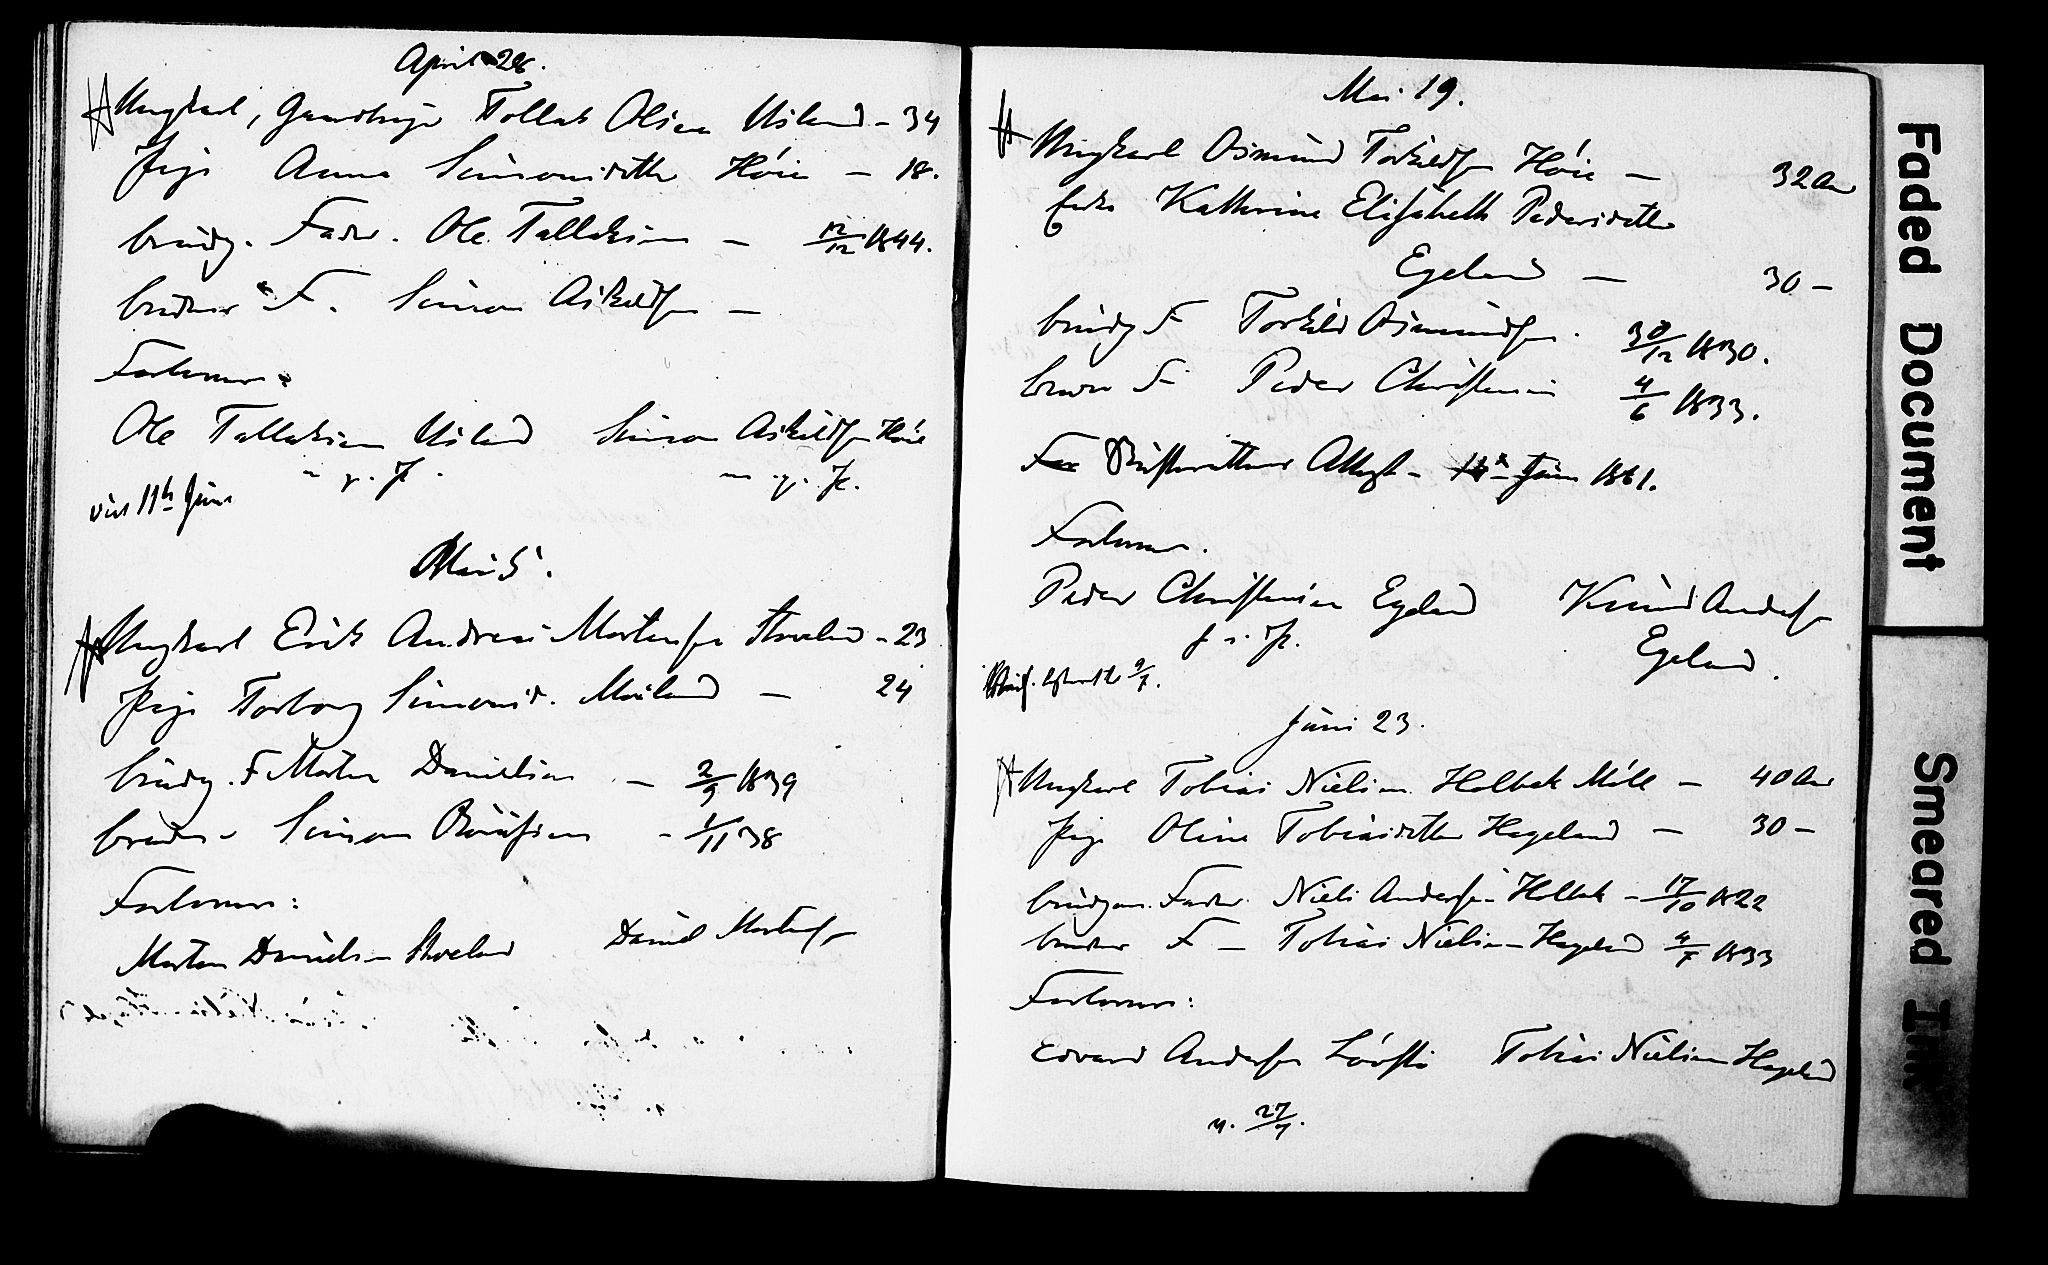 April 28.
Ungkarl, Gaardbruger Tollak Olsen Usland - 34
Pige Anna Simonsdatter Høie - 18.
brudg. Fader. Ole Tallaksen - 12/12 1844.
brudens F. Simon Askildsen -
Forlovere:
Ole Tallaksen Usland Simon Askildsen Høie
m. p. P. m. p. P.
viet 11te Juni
Mai 5.
Ungkarl Erik Andreas Mortensen Stoveland - 23
Pige Torborg Simonsd. Møland - 24
brudg. F Morten Danielsen - 2/9 1839
brudens - Simon - 1/11 38
Forlovere:
Morten Danielsen Stoveland Daniel Mortensen
Mai 19.
Ungkarl Osmund Torkildsen Høie - 32 Aar
Enke Kathrine Elisabeth Pedersdatter
Egeland - 30 -
brudg F Torkild Osmundsen. 30/12 1830.
brudens F Peder Christensen 4/6 1833.
Skifterettens Attest - Juni 1861.
Forlovere.
Peder Christensen Egeland Knud Andersen
Egeland.
Juni 23.
Ungkarl Tobias Nielsen Holbæk Møll - 40 Aar
Pige Oline Tobiasdatter Hageland - 30 -
brudgom. Fader. Niels Andersen Holbæk - 17/10 1822
brudens F - Tobias Nielsen Hageland 4/7 1833
Forlovere:
Edvard Andersen Tobias Nielsen Hageland
v. 27/7.
Faded Document
Smeared Ink